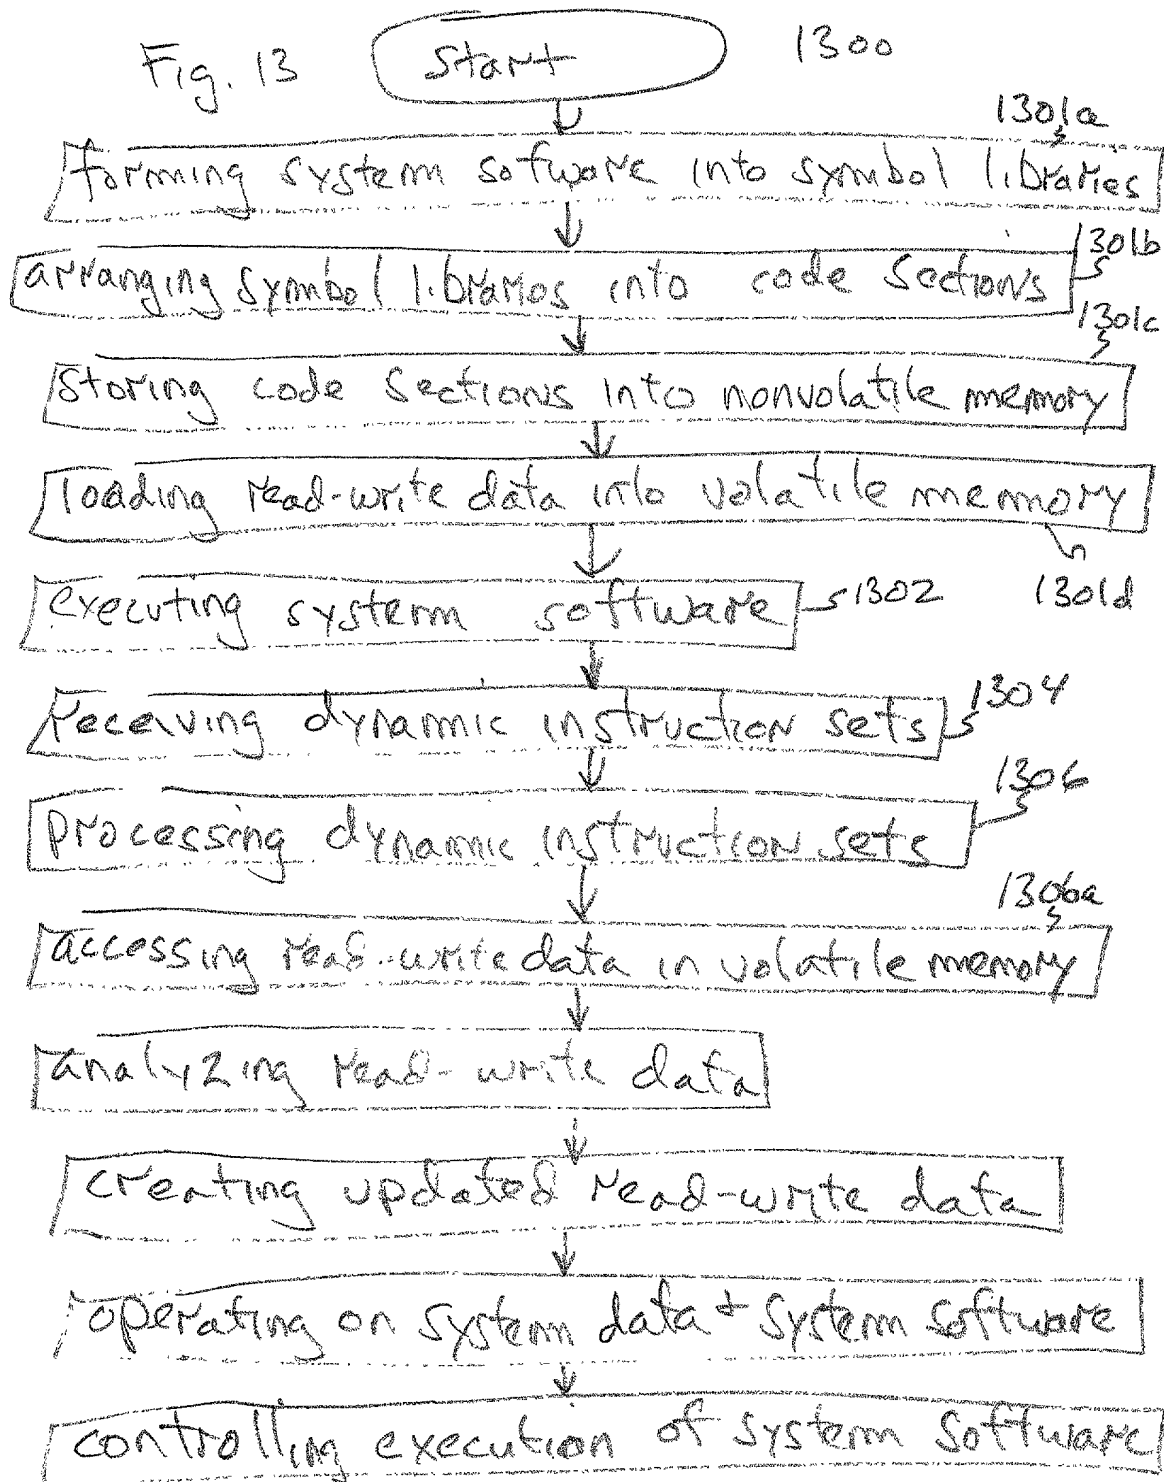 Fig. 13 Start 1300
1301a
forming system software into symbol libraries
1301b
arranging symbol libraries into code sections
1301c
storing code sections into nonvolatile memory
loading read-write data into volatile memory
1301d
executing system software 1302
receiving dynamic instruction sets 1304
1306
processing dynamic instruction sets
1306a
accessing read-write data in volatile memory
analyzing read-write data
creating updated read-write data
operating on system data + system software
controlling execution of system software